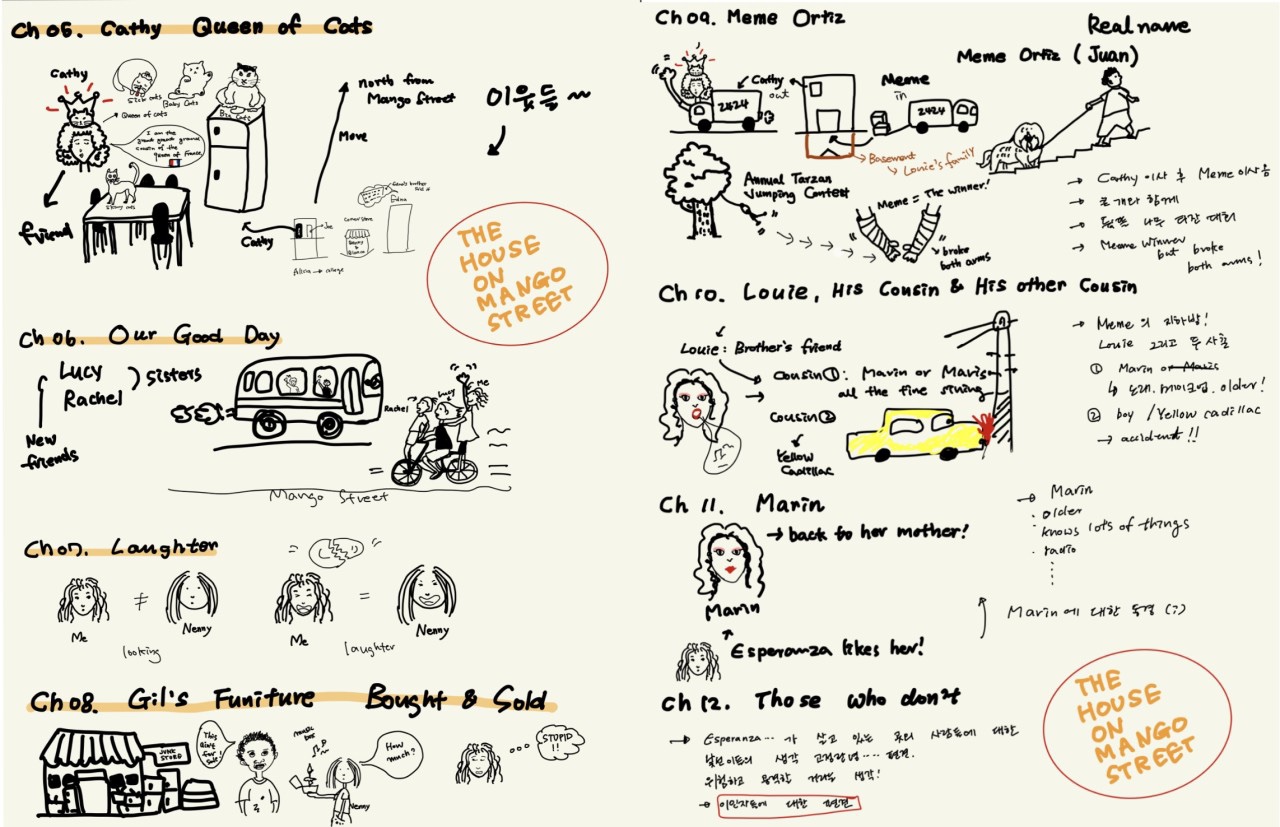 Ch 05. Cathy Queen of Cats
Cathy
Sick cats
Baby Cats
Big Cats
Queen of cats
I am the
great great grand
cousin of the
queen of France
Skinny cats
friend
north from
Mango Street
Move
이웃들 ~
Cathy
Joe
Corner Store
Benny &
Blanca
Edna
Alicia → college
THE
HOUSE
ON
MANGO
STREET
Ch 06. Our Good Day
Lucy
Rachel
Sisters
New
friends
Rachel
Lucy
Me
Mango Street
Ch 07. Laughter
Me ≠ Nenny
looking
Me = Nenny
laughter
Ch 08. Gil's Funiture Bought & Sold
JUNK
STORE
This
ain't
for
sale!
music
box
How
much?
Nenny
STUPID
!!
Ch 09. Meme Ortiz
Real name
Meme Ortiz (Juan)
Cathy
out
2424
Meme
in
2424
Basement
Louie's family
Annual Tarzan
Jumping Contest
Meme = The winner!
broke
both arms
→ Cathy 이사 후 Meme 이사옴
→ 큰 개와 함께
→ 나무 타잔 대회
→ Meme winner
but broke
both arms!
Ch 10. Louie, His Cousin & His other Cousin
Louie: Brother's friend
Cousin①: Marin or Maris
all the time singing
Cousin②
Yellow
Cadillac
→ Meme의 지하방!
Louie 그리고 두 사촌
① Marin or Maris
↳ 노래. 메이크업. older!
② boy / Yellow cadillac
→ accident!!
Ch 11. Marin
→ back to her mother!
Marin
Esperanza likes her!
→ Marin
· older
· knows lots of things
· radio
Marin에 대한 동경 (?)
Ch 12. Those who don't
→ Esperanza... 가 살고 있는 동네 사람들에 대한
낯선 이들의 생각 고정관념.... 편견.
위험하고 생각!
→ 이민자들에 대한 편견
THE
HOUSE
ON
MANGO
STREET